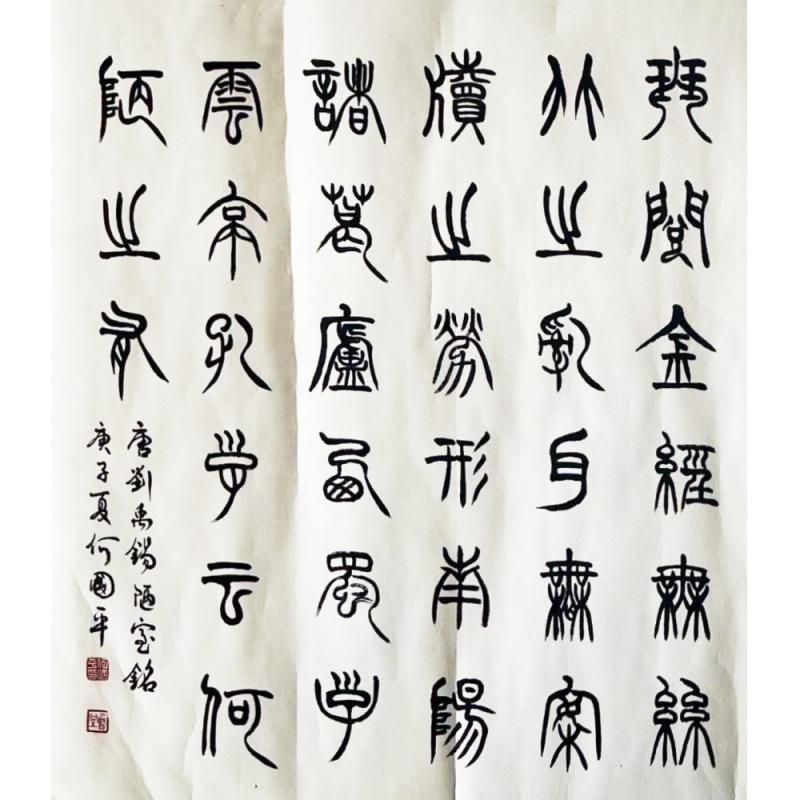 琴閱金經無絲
竹之亂耳無案
牘之勞形南陽
諸葛廬西蜀子
雲亭孔子云何
陋之有
唐劉禹錫陋室銘
庚子夏何國平